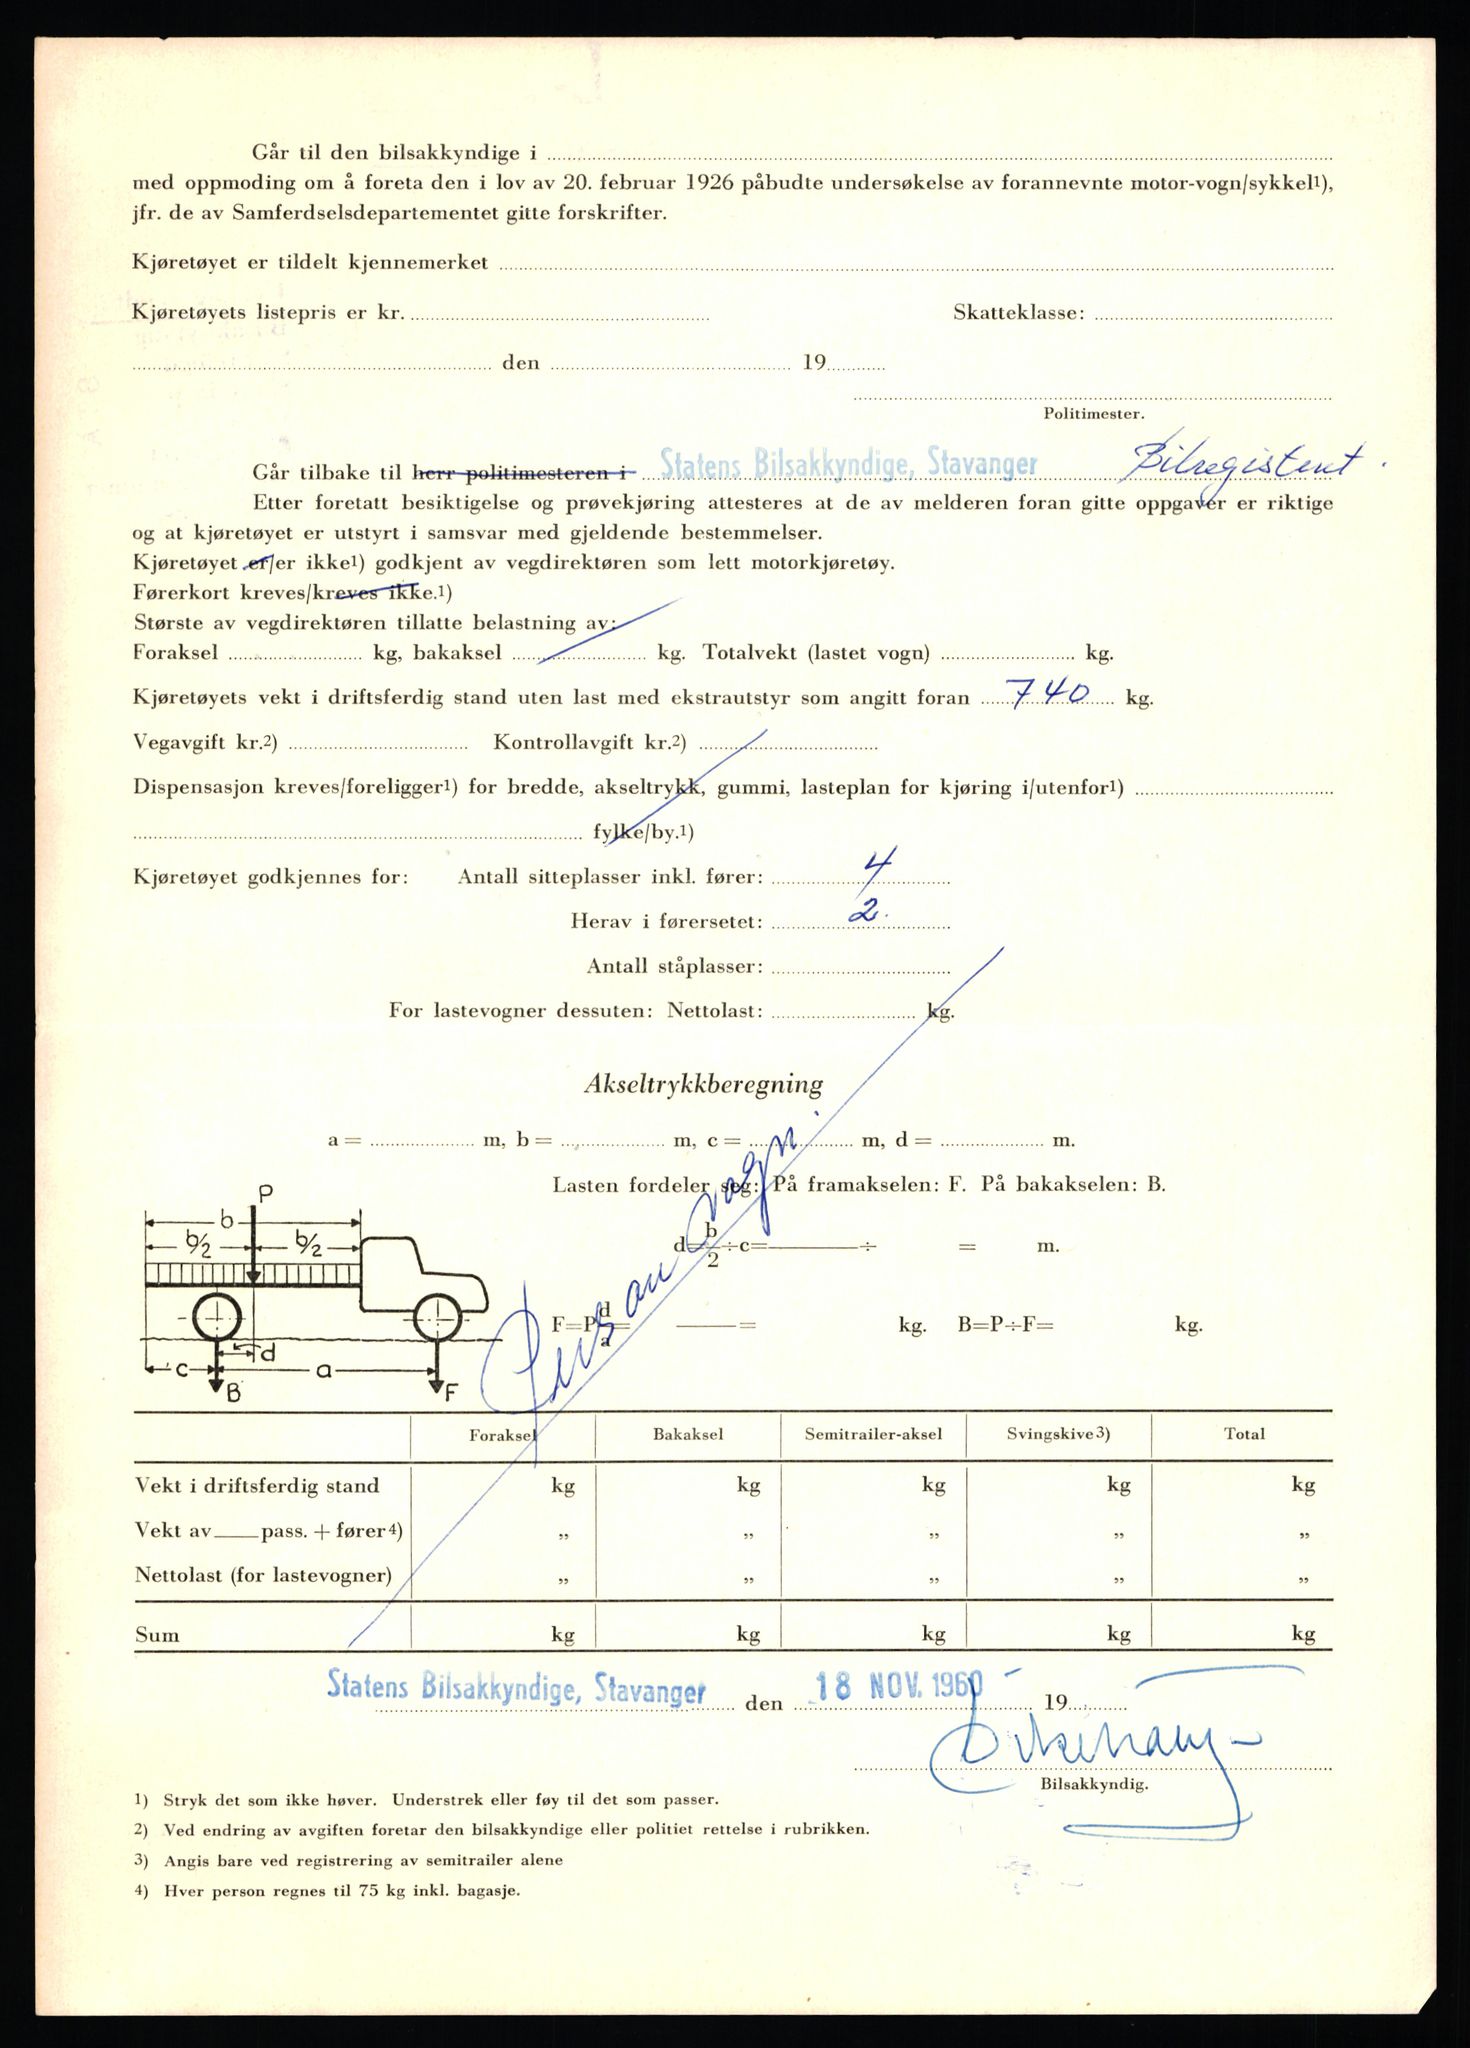 Går til den bilsakkyndige i
med oppmoding om å foreta den i lov av 20. februar 1926 påbudte undersøkelse av forannevnte motor-vogn/sykkel1),
jfr. de av Samferdselsdepartementet gitte forskrifter.
Kjøretøyet er tildelt kjennemerket
Kjøretøyets listepris er kr. Skatteklasse:
den 19
Politimester.
Går tilbake til herr politimesteren i Statens Bilsakkyndige, Stavanger Bilregisteret.
Etter foretatt besiktigelse og prøvekjøring attesteres at de av melderen foran gitte oppgaver er riktige
og at kjøretøyet er utstyrt i samsvar med gjeldende bestemmelser.
Kjøretøyet er/er ikke1) godkjent av vegdirektøren som lett motorkjøretøy.
Førerkort kreves/kreves ikke.1)
Største av vegdirektøren tillatte belastning av:
Foraksel kg, bakaksel kg. Totalvekt (lastet vogn) kg.
Kjøretøyets vekt i driftsferdig stand uten last med ekstrautstyr som angitt foran 740 kg.
Vegavgift kr.2) Kontrollavgift kr.2)
Dispensasjon kreves/foreligger1) for bredde, akseltrykk, gummi, lasteplan for kjøring i/utenfor1)
fylke/by.1)
Kjøretøyet godkjennes for: Antall sitteplasser inkl. fører: 4
Herav i førersetet: 2.
Antall ståplasser:
For lastevogner dessuten: Nettolast: kg.
Akseltrykkberegning
a = m, b = m, c = m, d = m.
Lasten fordeler seg: På framakselen: F. På bakakselen: B.
Person vogn.
P
b
b/2 b/2
d = b/2 ÷ c = ÷ = m.
F=P d/a = = kg. B=P÷F= kg.
c d a
B F
Foraksel Bakaksel Semitrailer-aksel Svingskive3) Total
Vekt i driftsferdig stand kg kg kg kg kg
Vekt av pass. + fører4) „ „ „ „ „
Nettolast (for lastevogner) „ „ „ „ „
Sum kg kg kg kg kg
Statens Bilsakkyndige, Stavanger den 18 NOV. 1960 19
Bilsakkyndig.
1) Stryk det som ikke høver. Understrek eller føy til det som passer.
2) Ved endring av avgiften foretar den bilsakkyndige eller politiet rettelse i rubrikken.
3) Angis bare ved registrering av semitrailer alene
4) Hver person regnes til 75 kg inkl. bagasje.